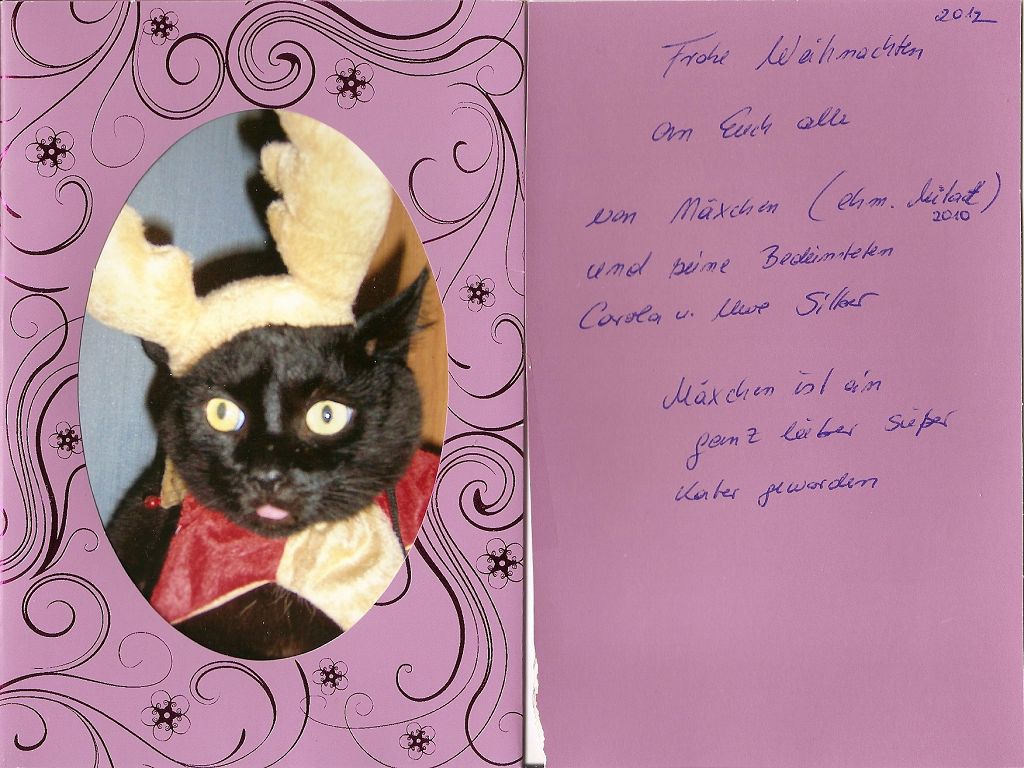 2012
Frohe Weihnachten
an Euch alle
von Mäxchen (ehm.
2010
und seine Bediensteten
Carola u. Uwe Silber
Mäxchen ist ein
ganz lieber süßer
Kater geworden